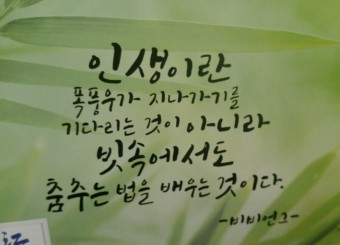 인생이란
폭풍우가 지나가기를
기다리는 것이 아니라
빗속에서도
춤추는 법을 배우는 것이다.
-비비언그-